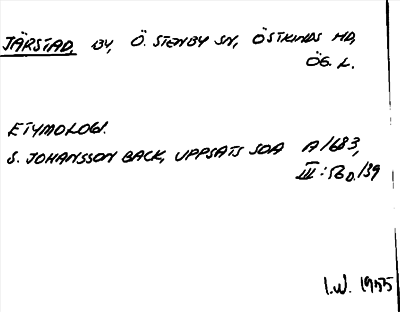 JÄRSTAD, BY, Ö. STENBY SN, ÖSTKINDS HD,
ÖG. L.
ETYMOLOGI.
S. JOHANSSON BACK, UPPSATS SOA A1683,
III: 139
I.W. 1955